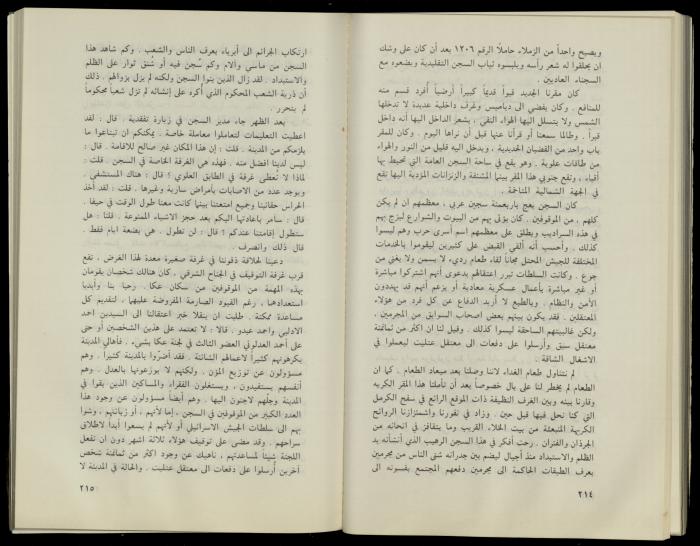 ويصبح واحداً من الزملاء حاملاً الرقم ١٢٠٦ بعد أن كان على وشك
ان يحلقوا له شعر رأسه ويلبسوه ثياب السجن التقليدية ويضعوه مع
السجناء العاديين .
كان مقرنا الجديد قبواً قديماً كبيراً أرضياً أفرد قسم منه
للمنافع . وكان يفضي الى دياميس وغرف داخلية عديدة لا تدخلها
الشمس ولا يتسلل اليها الهواء النقي ، يشعر الداخل اليها أنه داخل
قبراً . وطالما سمعنا أو قرأنا عنها قبل أن نراها اليوم . وكان للمقر
باب واحد من القضبان الحديدية ، ويدخل اليه قليل من النور والهواء
من طاقات علوية . وهو يقع في ساحة السجن العامة التي تحيط بها
أقبية ، وتقع جنوبي هذا المقر بينها المشنقة والزنزانات المزدية اليها تقع
في الجهة الشمالية المتاخمة .
كان السجن يعج باربعمئة سجين عربي ، معظمهم ان لم يكن
كلهم ، من الموقوفين . كان يؤتى بهم من البيوت والشوارع ليزج بهم
في هذه السراديب ويطلق على معظمهم اسم أسرى حرب وهم ليسوا
كذلك . وأحسب أنه ألقي القبض على كثيرين ليقوموا بالخدمات
المختلفة للجيش المحتل مجاناً لقاء طعام رديء لا يسمن ولا يغني من
جوع . وكانت السلطات تبرر اعتقالهم بدعوى أنهم اشتركوا مباشرة
أو غير مباشرة بأعمال عسكرية معادية أو بزعم أنهم قد يهددون
الأمن والنظام . وبالطبع لا أريد الدفاع عن كل فرد من هؤلاء
المعتقلين . فقد يكون بينهم بعض اصحاب السوابق من المجرمين ،
ولكن غالبيتهم الساحقة ليسوا كذلك . وقيل لنا ان اكثر من ثمانمئة
معتقل سبق وأرسلوا على دفعات الى معتقل عتليت ليعملوا في
الاشغال الشاقة .
لم نتناول طعام الغداء لاننا وصلنا بعد ميعاد الطعام . كما ان
الطعام لم يخطر لنا على بال خصوصاً بعد أن تأملنا هذا المقر الكريه
وقارنا بينه وبين الغرف النظيفة ذات الموقع الرائع في سفح الكرمل
التي كنا نحل فيها قبل حين . وزاد في نفورنا واشمئزازنا الروائح
الكريهة المنبعثة من بيت الخلاء القريب وما يتقافز في انحائه من
الجرذان والفئران . رحت أفكر في هذا السجن الرهيب الذي أنشأته يد
الظلم والاستبداد منذ أجيال ليضم بين جدرانه شتى الناس من مجرمين
بعرف الطبقات الحاكمة الى مجرمين دفعهم المجتمع بقسوته الى
٢١٤
ارتكاب الجرائم الى أبرياء بعرف الناس والشعب . وكم شاهد هذا
السجن من مآسي وآلام وكم سُجن فيه أو شُنق ثوار على الظلم
والاستبداد . لقد زال الذين بنوا السجن ولكنه لم يزل بزوالهم . ذلك
أن ذرية الشعب المحكوم الذي أكره على إنشائه لم تزل شعباً محكوماً
لم يتحرر .
بعد الظهر جاء مدير السجن في زيارة تفقدية . قال : لقد
اعطيت التعليمات لتعاملوا معاملة خاصة . يمكنكم ان تبتاعوا ما
يلزمكم من المدينة . قلت : إن هذا المكان غير صالح للاقامة . قال :
ليس لدينا افضل منه . فهذه هي الغرفة الخاصة في السجن . قلت :
لماذا لا نُعطى غرفة في الطابق العلوي ؟ قال : هناك المستشفى .
ويوجد عدد من الاصابات بأمراض سارية وغيرها . قلت : لقد أخذ
الحراس حقائبنا وجميع امتعتنا بينها كانت معنا طول الوقت في حيفا .
قال : سآمر باعادتها اليكم بعد حجز الاشياء الممنوعة . قلنا : هل
ستطول إقامتنا عندكم ؟ قال : لن تطول . هي بضعة ايام فقط .
قال ذلك وانصرف .
دعينا لحلاقة ذقوننا في غرفة صغيرة معدة لهذا الغرض ، تقع
قرب غرفة التوقيف في الجناح الشرقي ، كان هنالك شخصان يقومان
بهذه المهمة من الموقوفين من سكان عكا . رحبا بنا وأبديا
استعدادهما ، رغم القيود الصارمة المفروضة عليهما ، لتقديم كل
مساعدة ممكنة . طلبت ان ينقلا خبر اعتقالنا الى السيدين احمد
الادلبي واحمد عبدو . قالا : لا تعتمد على هذين الشخصين أو حتى
على أحمد العدلوني العضو الثالث في لجنة عكا بشيء . فأهالي المدينة
يكرهونهم كثيراً لاعمالهم الشائنة . فقد أضرّوا بالمدينة كثيراً . وهم
مسؤولون عن توزيع المؤن . ولكنهم لا يوزعونها بالعدل . وهم
أنفسهم يستفيدون ، ويستغلون الفقراء والمساكين الذين بقوا في
المدينة وجلّهم لاجئون اليها . وهم أيضاً مسؤولون عن وجود هذا
العدد الكبير من الموقوفين في السجن ، إما لأنهم ، أو زبانتهم ، وشوا
بهم الى سلطات الجيش الاسرائيلي أو لأنهم لم يسعوا أبداً لاطلاق
سراحهم . وقد مضى على توقيف هؤلاء ثلاثة اشهر دون ان تفعل
اللجنة شيئاً لمساعدتهم ، ناهيك عن وجود اكثر من ثمانمئة شخص
آخرين أُرسلوا على دفعات الى معتقل عتليت . والحالة في المدينة لا
٢١٥